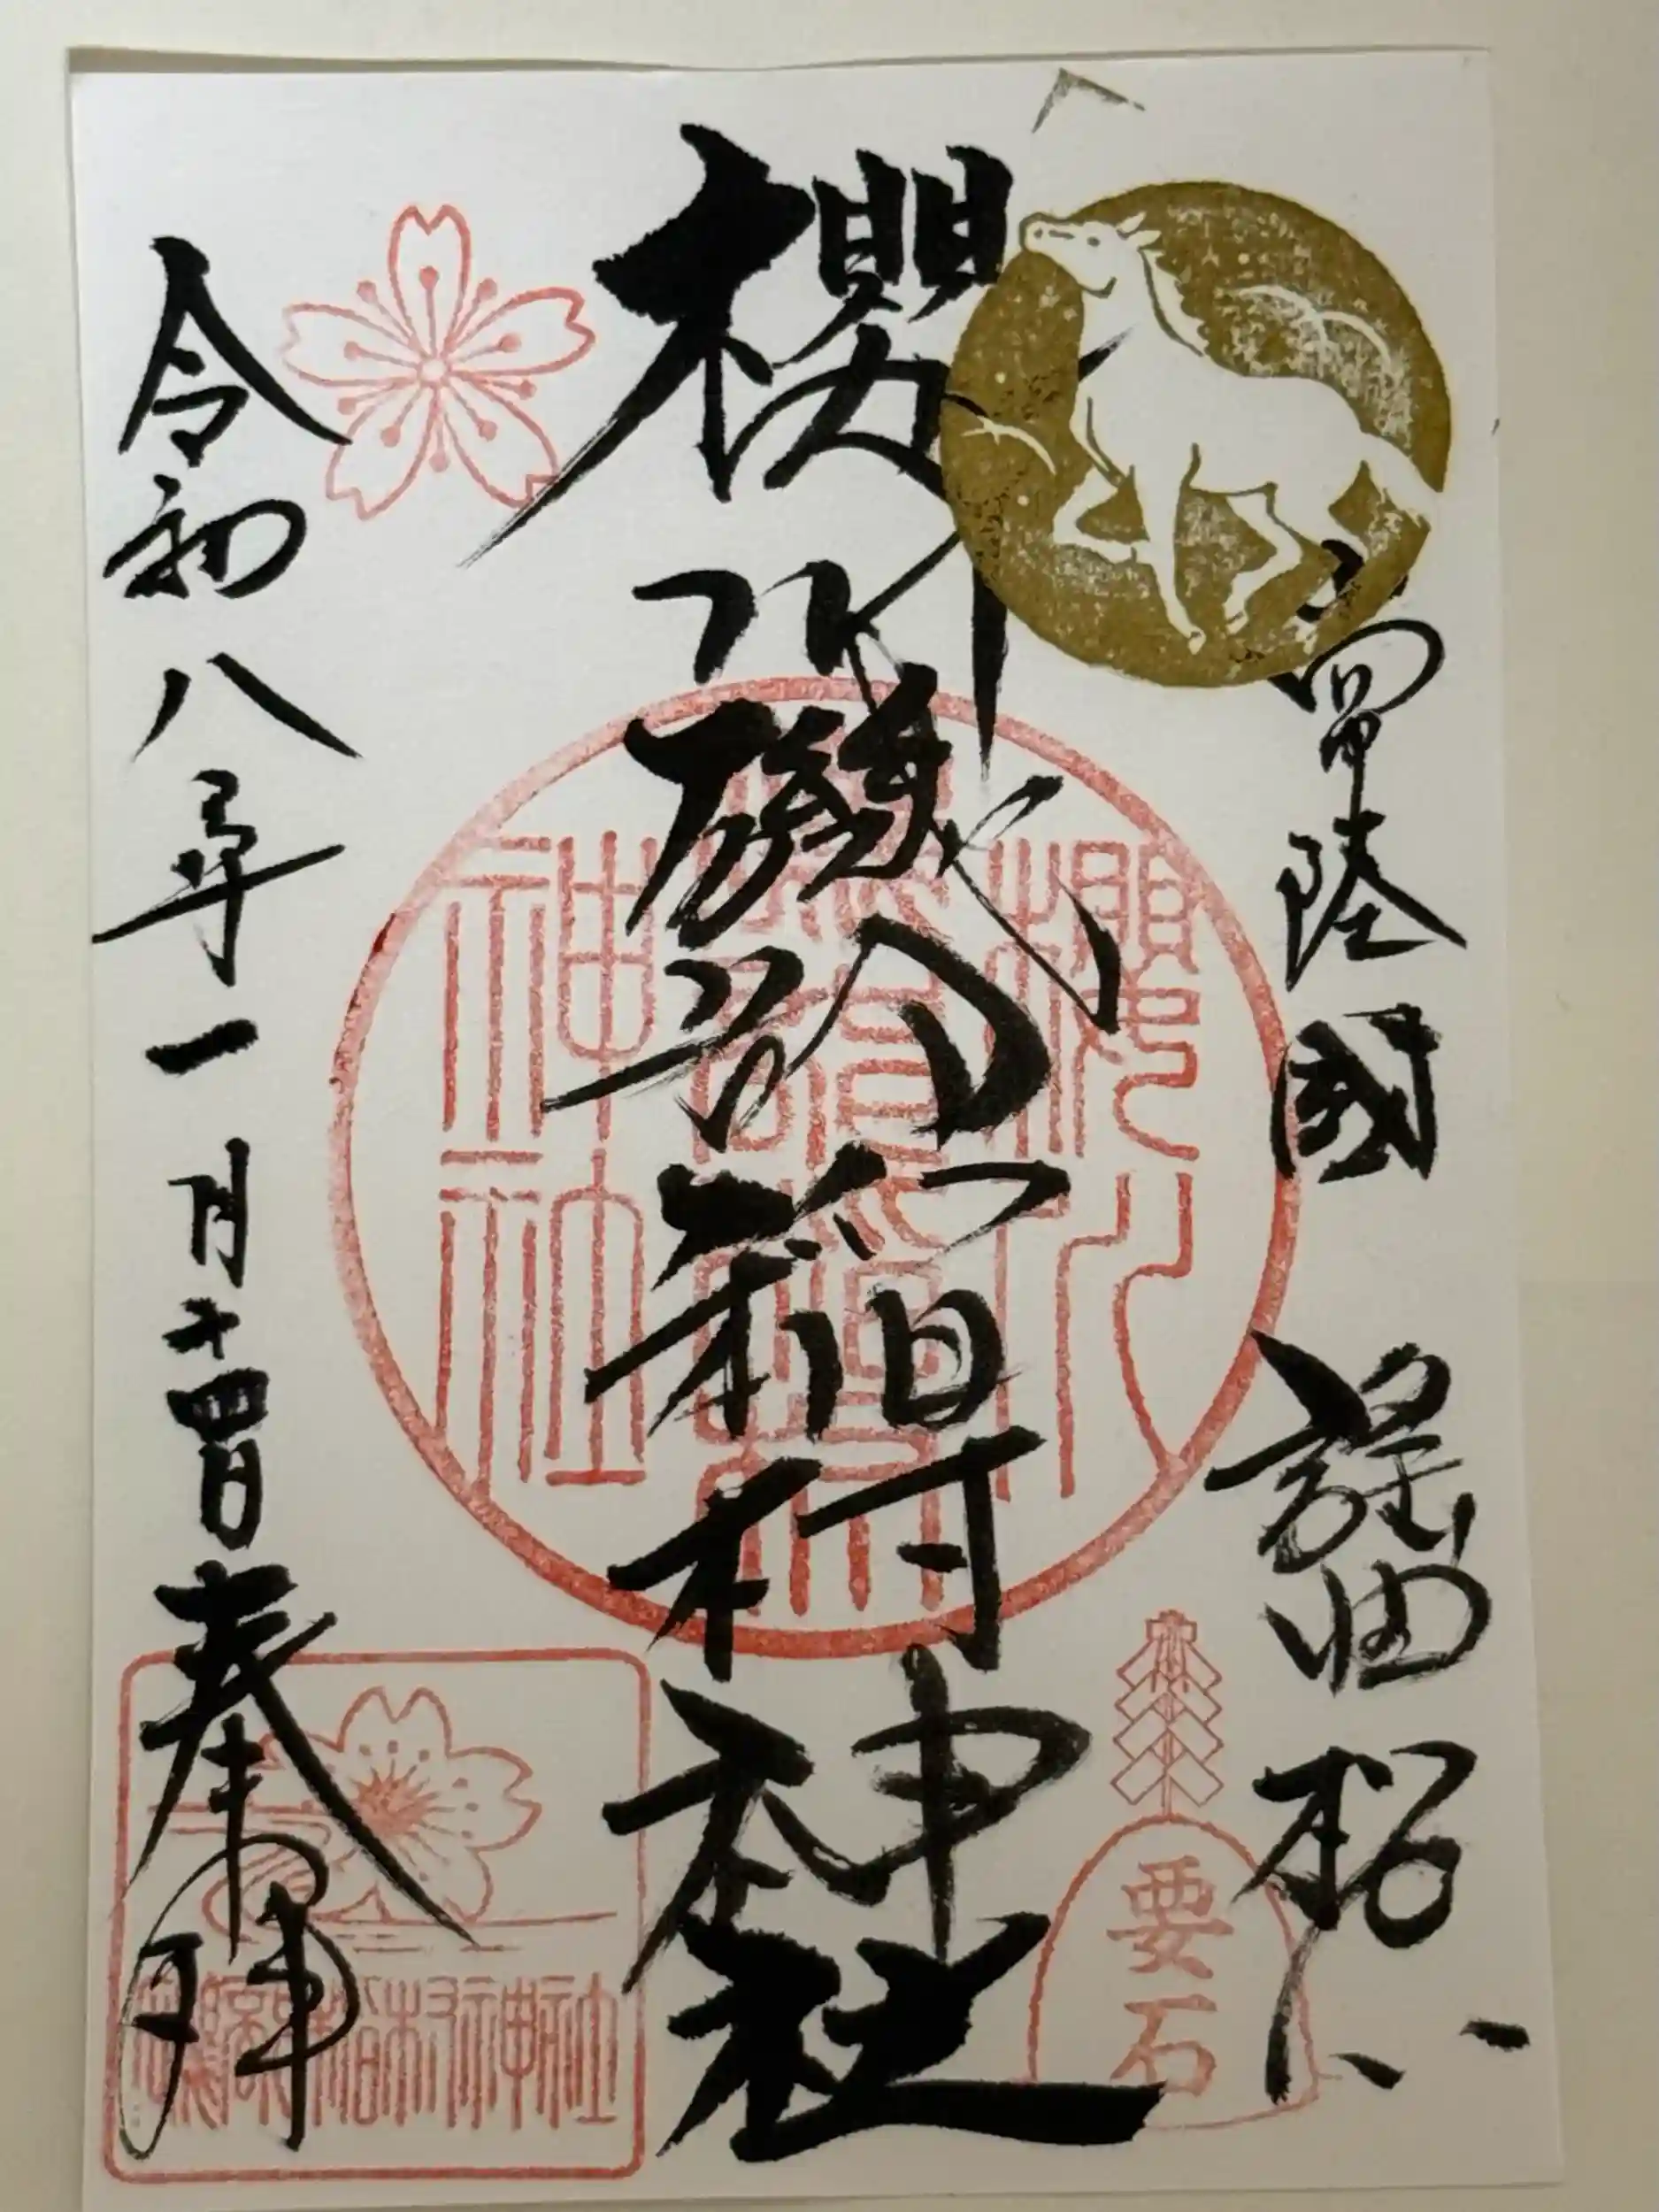 常陸國 謡曲 桜川
櫻川磯部稲村神社
令和八年一月十四日 奉拝
櫻川
磯部稲村
神社
要石
磯部稲村神社